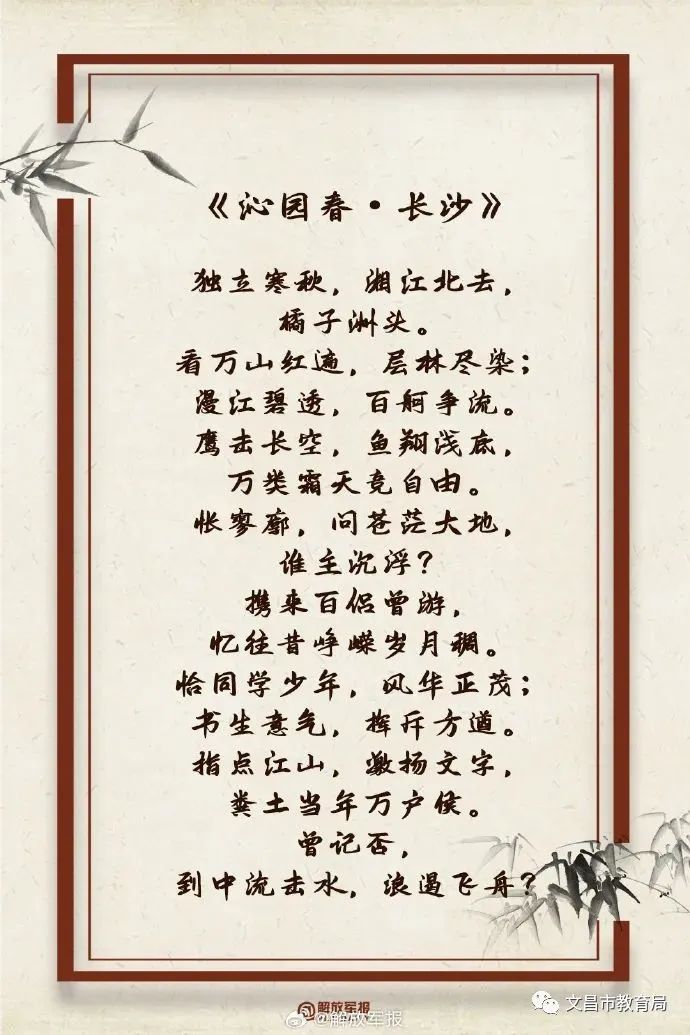 《沁园春·长沙》
独立寒秋，湘江北去，
橘子洲头。
看万山红遍，层林尽染；
漫江碧透，百舸争流。
鹰击长空，鱼翔浅底，
万类霜天竞自由。
怅寥廓，问苍茫大地，
谁主沉浮？
携来百侣曾游，
忆往昔峥嵘岁月稠。
恰同学少年，风华正茂；
书生意气，挥斥方遒。
指点江山，激扬文字，
粪土当年万户侯。
曾记否，
到中流击水，浪遏飞舟？
@解放军报
@解放军报
文昌市教育局